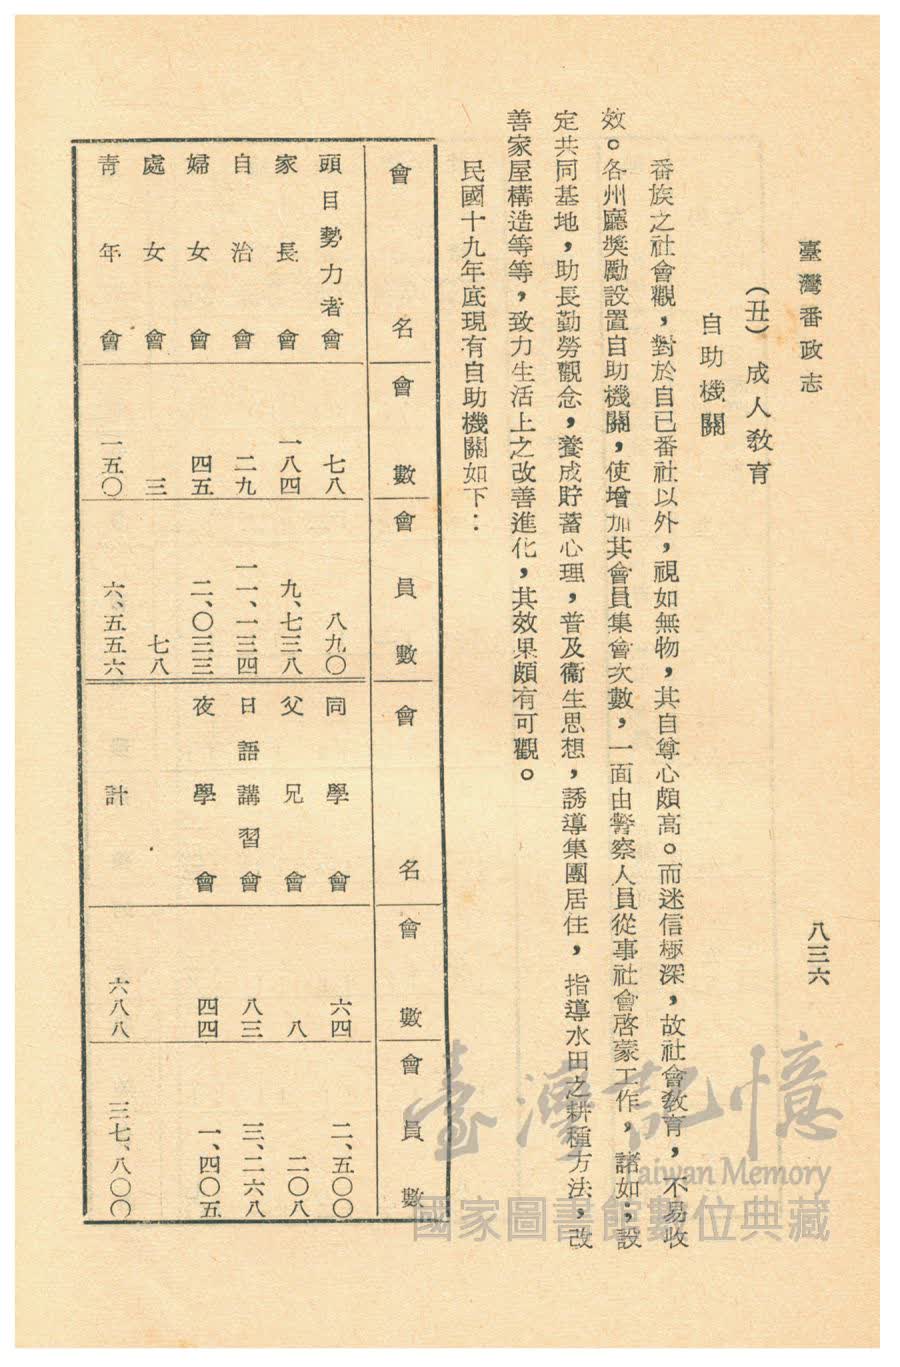 臺灣番政志
八三六
(丑)成人敎育
自助機關
番族之社會觀,對於自已番社以外,視如無物,其自尊心頗高。而迷信極深,故社會敎育,不易收
效。各州廳獎勵設置自助機關,使增加其會員集會次數,一面由警察人員從事社會啓蒙工作,諸如;設
定共同基地,助長勤勞觀念,養成貯蓄心理,普及衞生思想,誘導集團居住,指導水田之耕種方法,改
善家屋構造等等,致力生活上之改善進化,其效果頗有可觀。
民國十九年底現有自助機關如下:
會名 會數 會員數 會名 會數 會員數
頭目勢力者會 七八 八九〇 同學會 六四 二、五〇〇
家長會 一八四 九、七三八 父兄會 八 二〇八
自治會 二九 一一、一三四 日語講習會 八三 三、二六八
婦女會 四五 二、〇三三 夜學會 四四 一、四〇五
處女會 三 七八
靑年會 一五〇 六、五五六 計 六八八 三七、八〇〇
臺灣記憶
Taiwan Memory
國家圖書館數位典藏